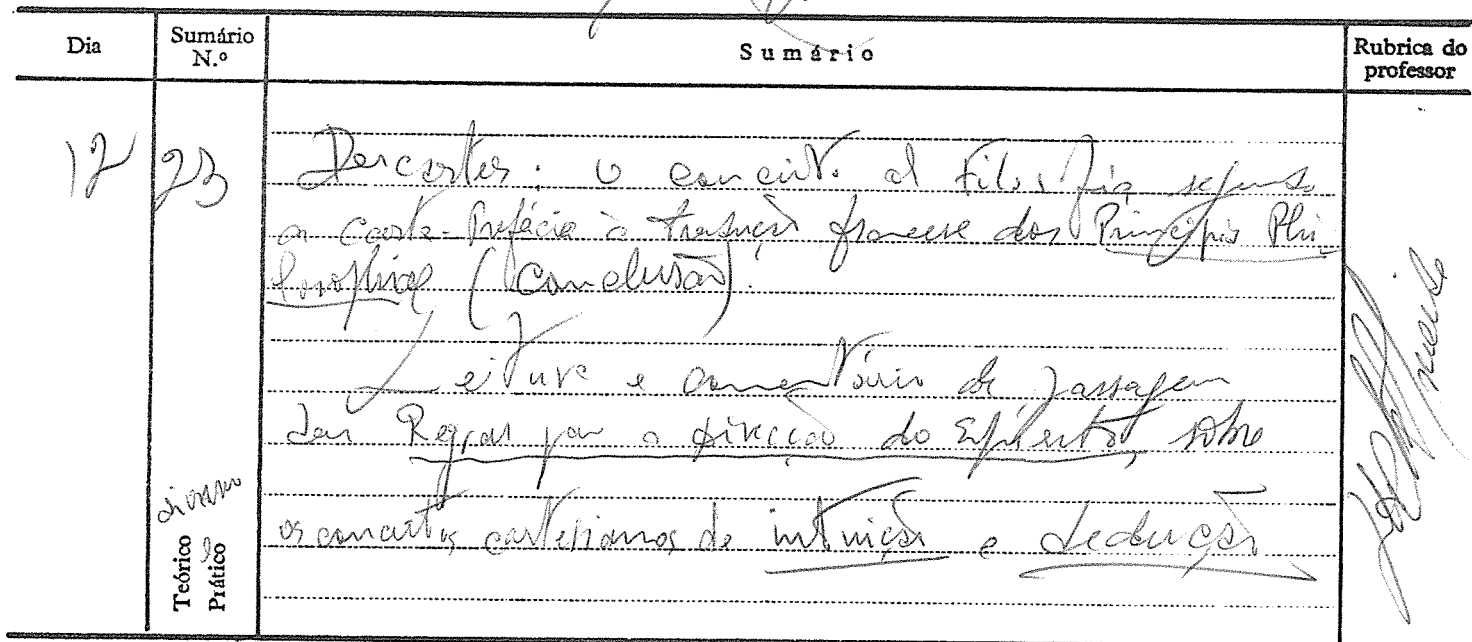 Dia
Sumário N.º
Sumário
Rubrica do professor
12
23
Descartes: o conceito de Filosofia segundo
a Carta-Prefácio à tradução francesa dos Principia Phi-
losophiae (Conclusão).
Leitura e comentário de passagem
das Regras para a Direcção do Espírito, sobre
os conceitos cartesianos de intuição e dedução
Teórico
Prático